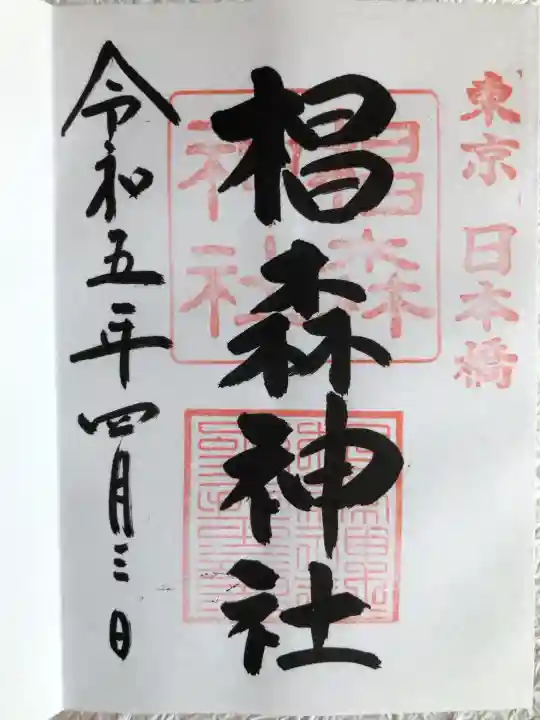 東京 日本橋
椙森神社
椙森
神社
令和五年四月三日